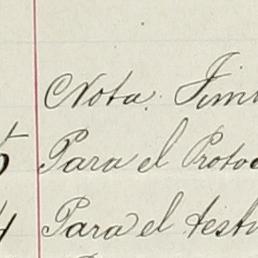 Nota. Tim
5 Para el Proto
4 Para el test